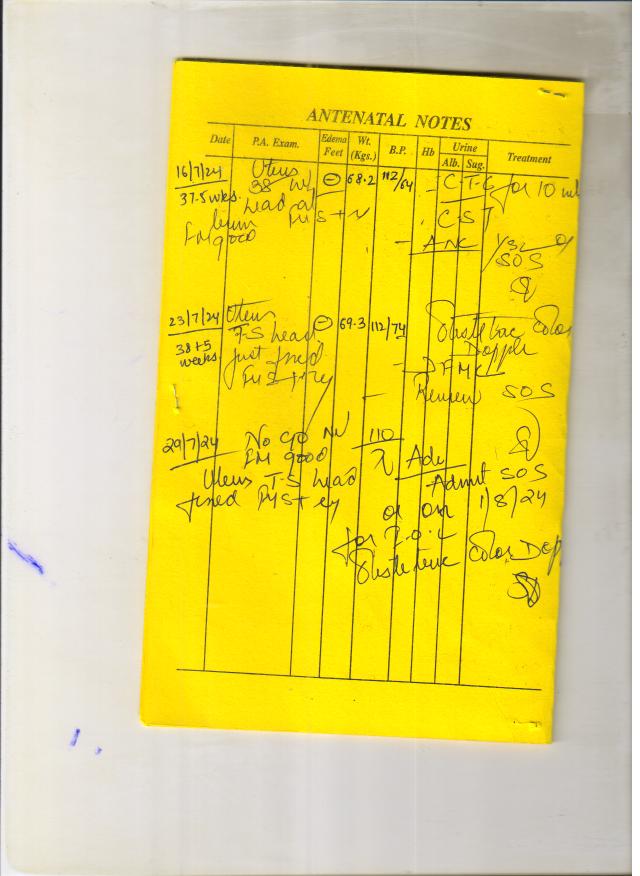 ANTENATAL NOTES
Date P.A. Exam. Edema Feet Wt. (Kgs.) B.P. Hb Urine Alb. Sug. Treatment
16/7/24 Uterus ⊖ 68.2 112/64 - CTG for 10
37.5 wks. 38 wks
head
FHS + CST
FM good
- ANC
SOS
23/7/24 Uterus ⊖ 69.3 112/74 Obstetric Color
38+5 weeks T-S head Doppler
just fixed - DFMC
FHS + Review SOS
29/7/24 No c/o 110
FM good Adv
Uterus T-S head Admit SOS
fixed FHS + or on 1/8/24
for I.O.L
Obstetric Color Dop